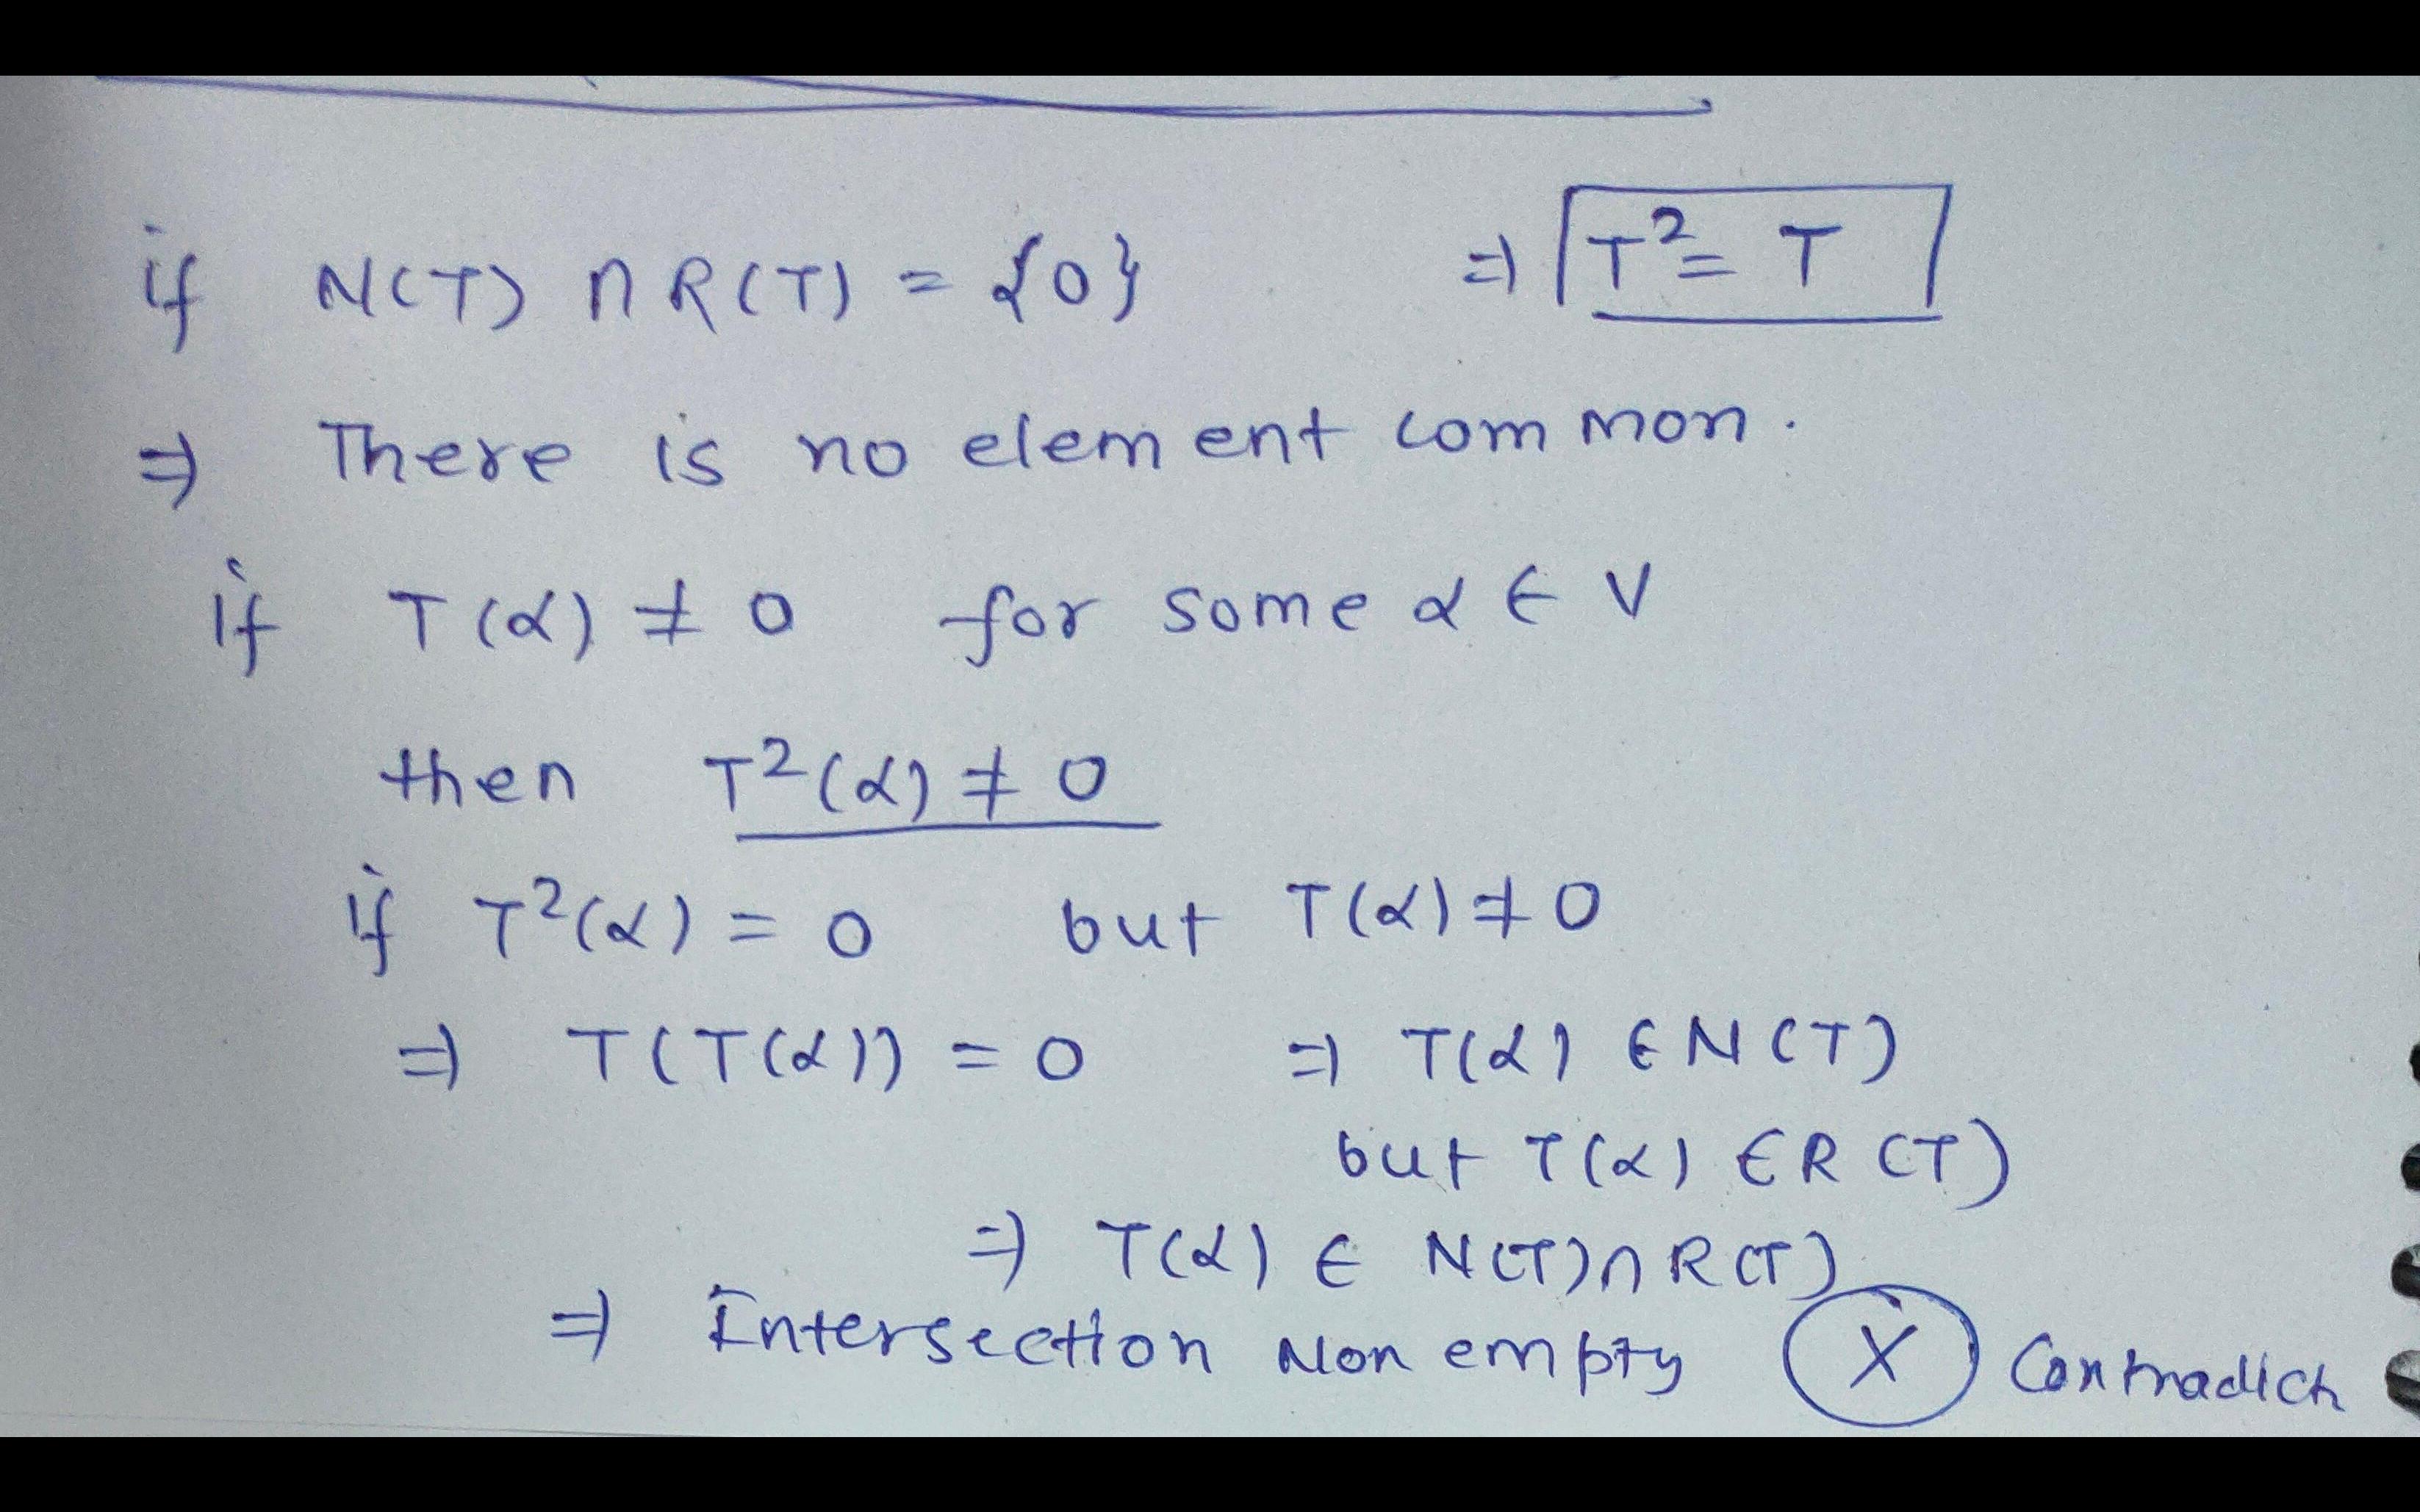 if N(T) ∩ R(T) = {0} ⇒ T² = T
⇒ There is no element common.
if T(α) ≠ 0 for some α ∈ V
then T²(α) ≠ 0
if T²(α) = 0 but T(α) ≠ 0
⇒ T(T(α)) = 0 ⇒ T(α) ∈ N(T)
but T(α) ∈ R(T)
⇒ T(α) ∈ N(T) ∩ R(T)
⇒ Intersection Non empty X Contradich